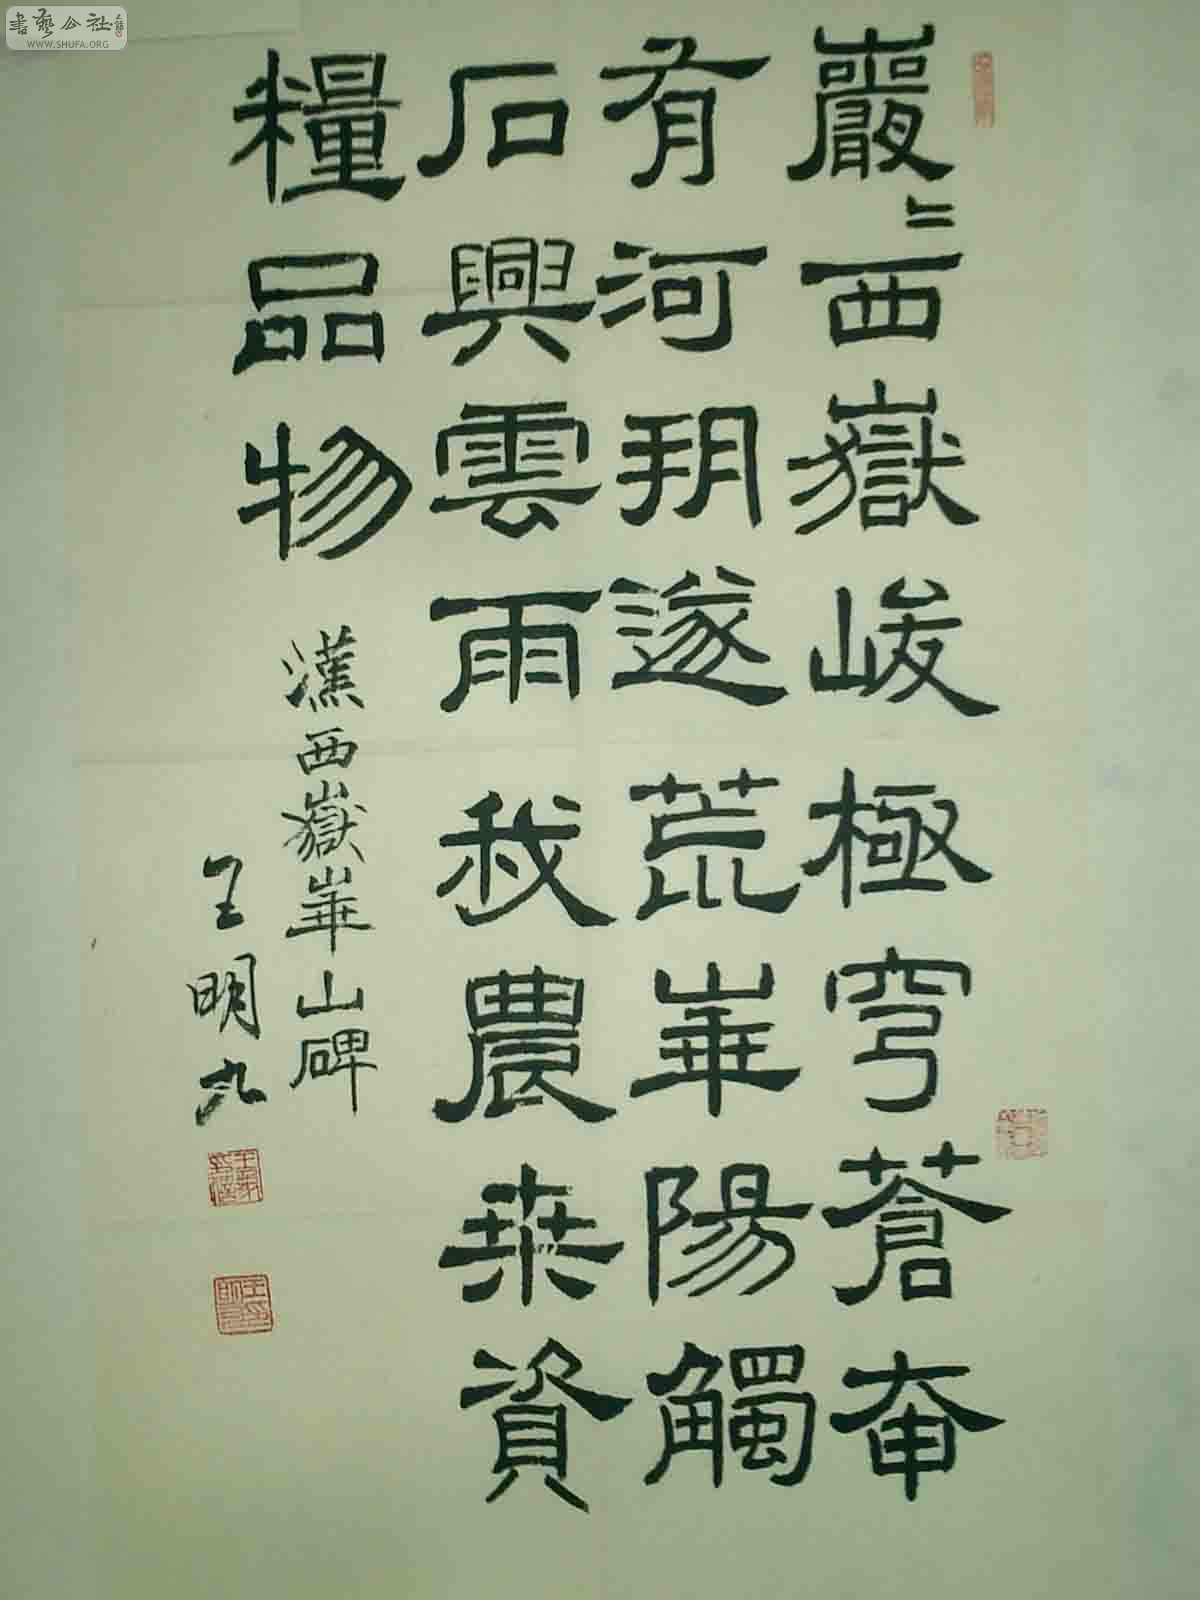 巖〻西嶽峻極穹蒼奄
有河朔遂荒崋陽觸
石興雲雨我農桒資
糧品物
漢西嶽崋山碑
王明九
書藝公社
WWW.SHUFA.ORG